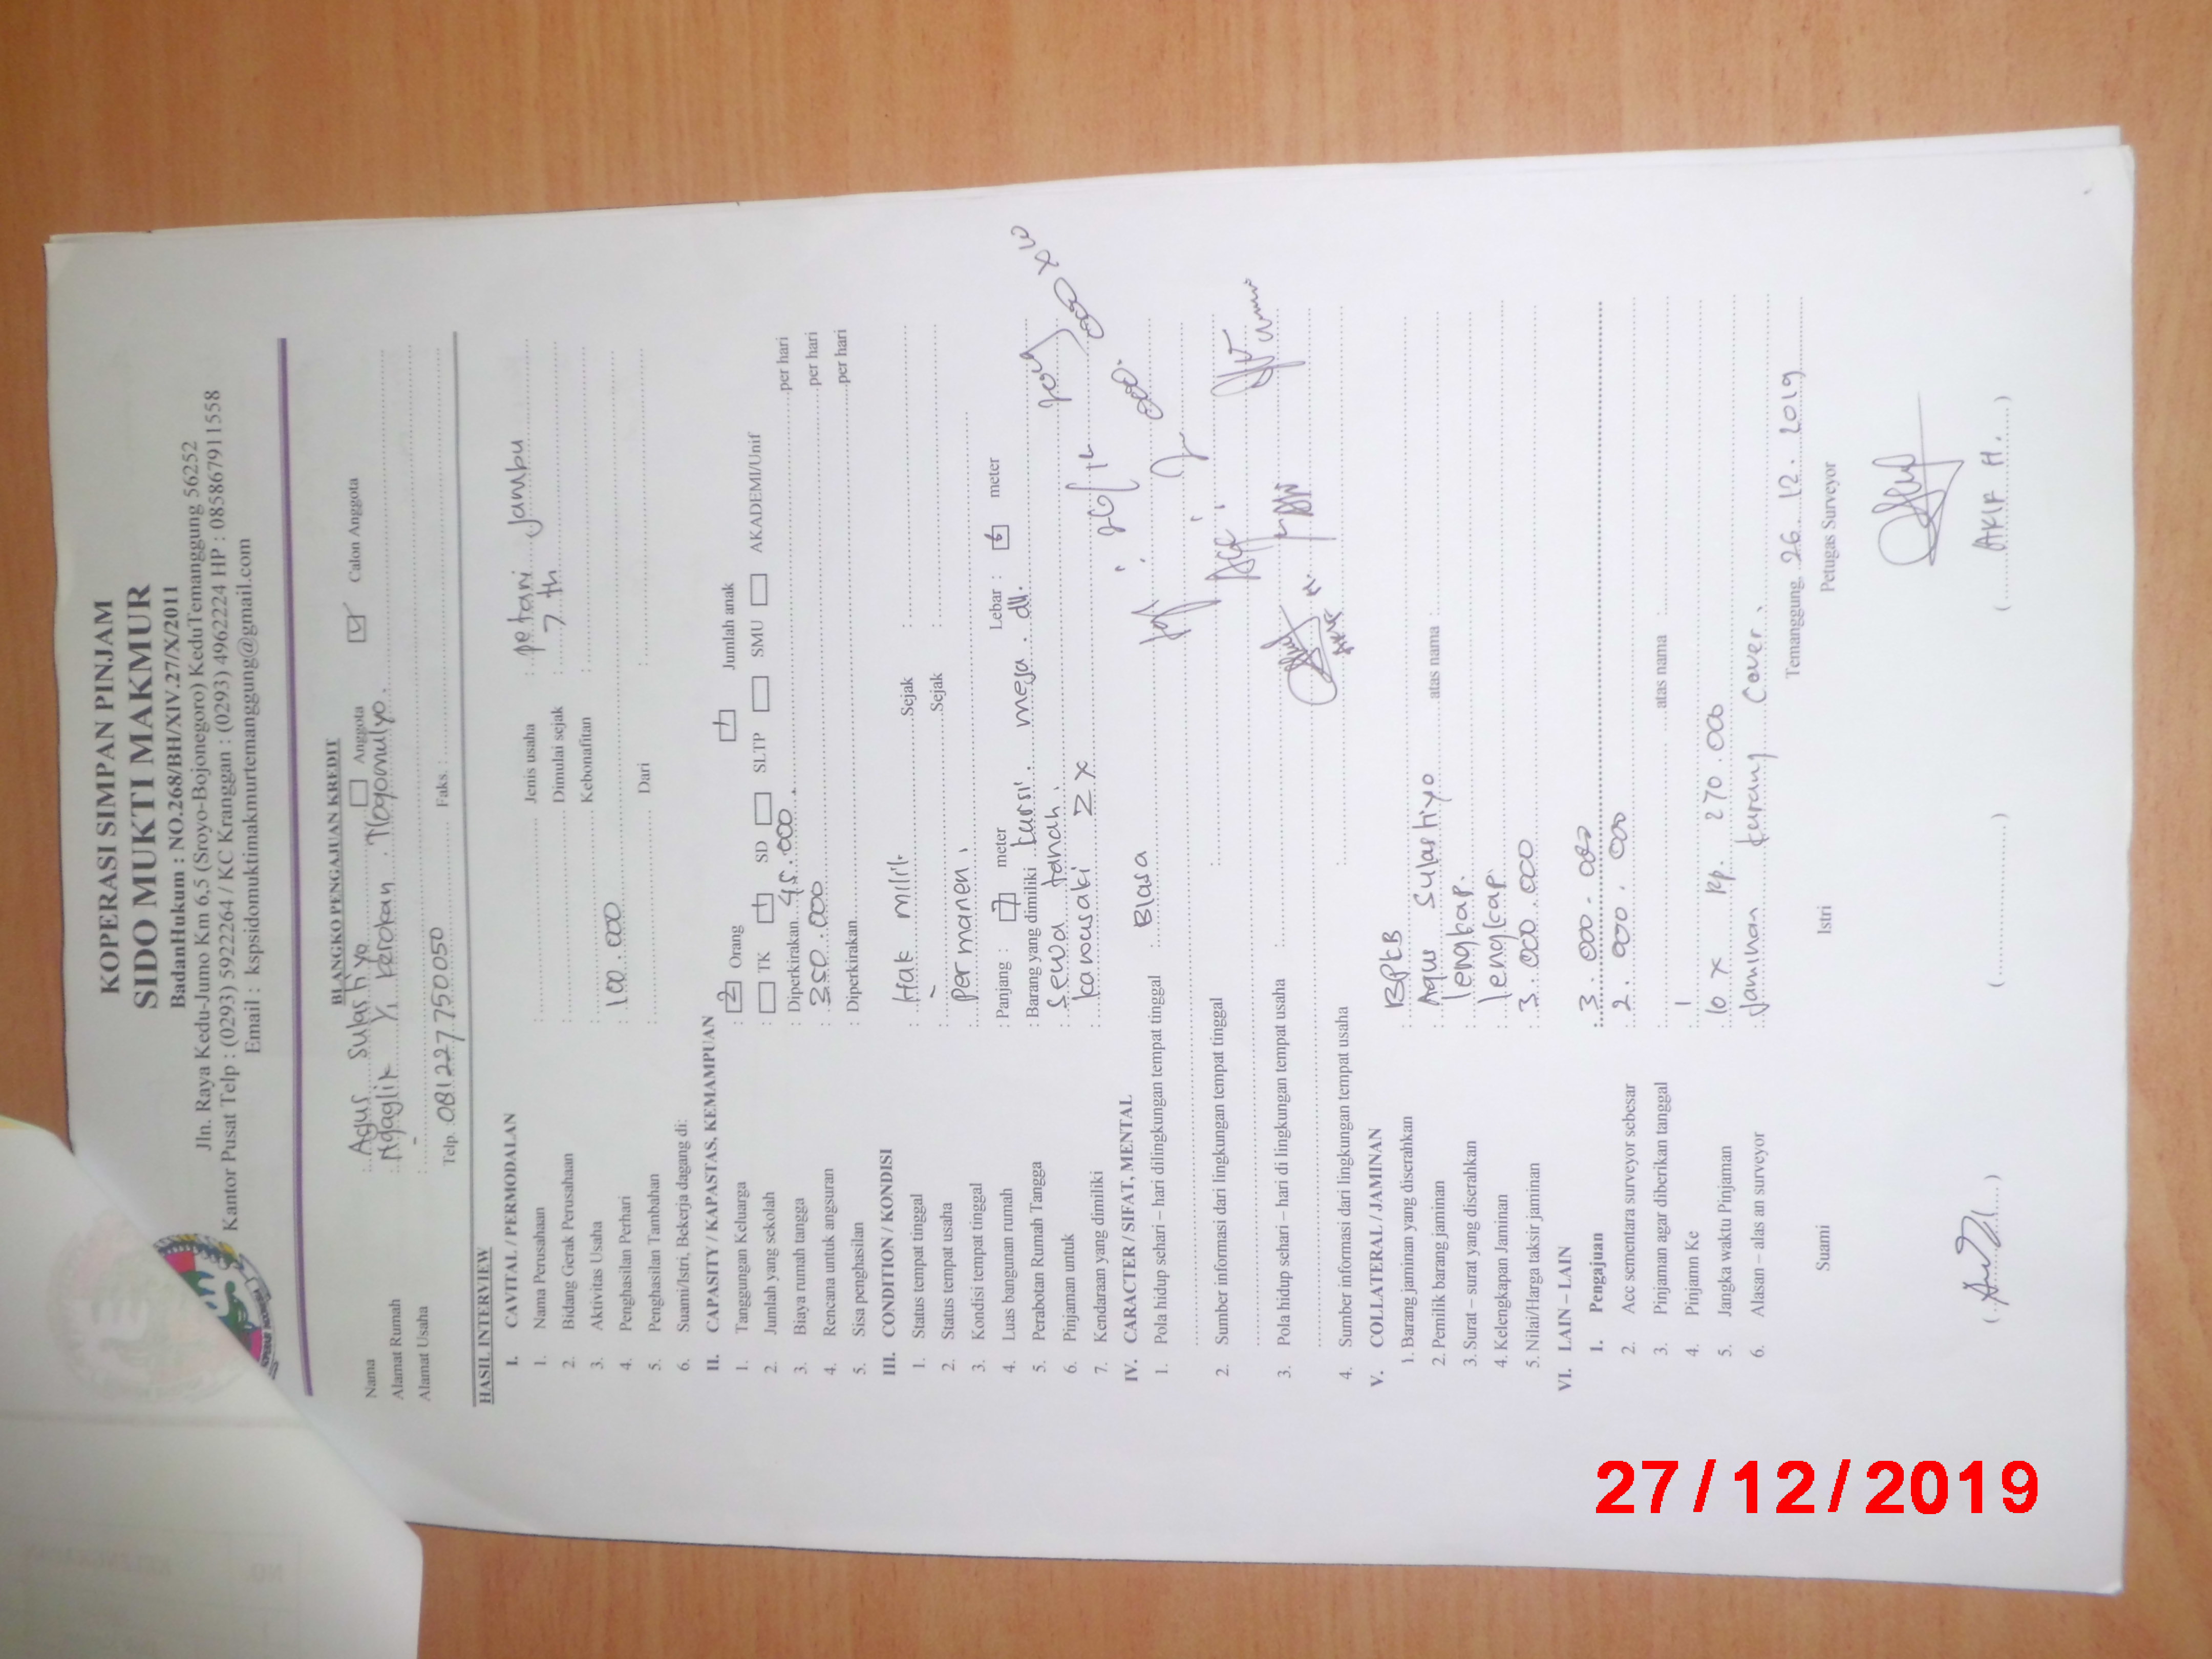 KOPERASI SIMPAN PINJAM
SIDO MUKTI MAKMUR
BadanHukum : NO.268/BH/XIV.27/X/2011
Jln. Raya Kedu-Jumo Km 6,5 (Sroyo-Bojonegoro) KeduTemanggung 56252
Kantor Pusat Telp : (0293) 5922264 / KC Kranggan : (0293) 4962224 HP : 085867911558
Email : kspsidomuktimakmurtemanggung@gmail.com
BLANGKO PENGAJUAN KREDIT
Anggota Calon Anggota
Nama : Agus Sulastiyo
Alamat Rumah : Ngaglik Kerokan . Tlogomulyo.
Alamat Usaha : -
Telp. : 081 227 750 050 Faks. :
HASIL INTERVIEW
I. CAVITAL / PERMODALAN
1. Nama Perusahaan : Jenis usaha : petani Jambu
2. Bidang Gerak Perusahaan : Dimulai sejak : 7 th
3. Aktivitas Usaha : Kebonafitan :
4. Penghasilan Perhari : 100.000
5. Penghasilan Tambahan : Dari :
6. Suami/Istri, Bekerja dagang di:
II. CAPASITY / KAPASTAS, KEMAMPUAN
1. Tanggungan Keluarga : 2 Orang 1 Jumlah anak
2. Jumlah yang sekolah : TK 1 SD SLTP SMU AKADEMI/Unif
3. Biaya rumah tangga : Diperkirakan 45.000. per hari
4. Rencana untuk angsuran : 350.000 per hari
5. Sisa penghasilan : Diperkirakan per hari
III. CONDITION / KONDISI
1. Status tempat tinggal : Hak milik Sejak :
2. Status tempat usaha : - Sejak :
3. Kondisi tempat tinggal : permanen.
4. Luas bangunan rumah : Panjang : 7 meter Lebar : 6 meter
5. Perabotan Rumah Tangga : Barang yang dimiliki kursi. meja. dll.
6. Pinjaman untuk : Sewa tanah.
7. Kendaraan yang dimiliki : kawasaki ZX
IV. CARACTER / SIFAT, MENTAL
1. Pola hidup sehari – hari dilingkungan tempat tinggal : Biasa
2. Sumber informasi dari lingkungan tempat tinggal :
3. Pola hidup sehari – hari di lingkungan tempat usaha :
4. Sumber informasi dari lingkungan tempat usaha :
V. COLLATERAL / JAMINAN
1. Barang jaminan yang diserahkan : BPKB
2. Pemilik barang jaminan : Agus Sulastiyo atas nama :
3. Surat – surat yang diserahkan : lengkap.
4. Kelengkapan Jaminan : lengkap
5. Nilai/Harga taksir jaminan : 3.000.000
VI. LAIN – LAIN
1. Pengajuan : 3.000.000
2. Acc sementara surveyor sebesar : 2.000.000
3. Pinjaman agar diberikan tanggal : atas nama :
4. Pinjamn Ke : 1
5. Jangka waktu Pinjaman : 10 x Rp. 270.000
6. Alasan – alas an surveyor : Jaminan kurang Cover.
Temanggung, 26. 12. 2019
Suami Istri Petugas Surveyor
( ) ( ) ( AKIF H. )
27/12/2019